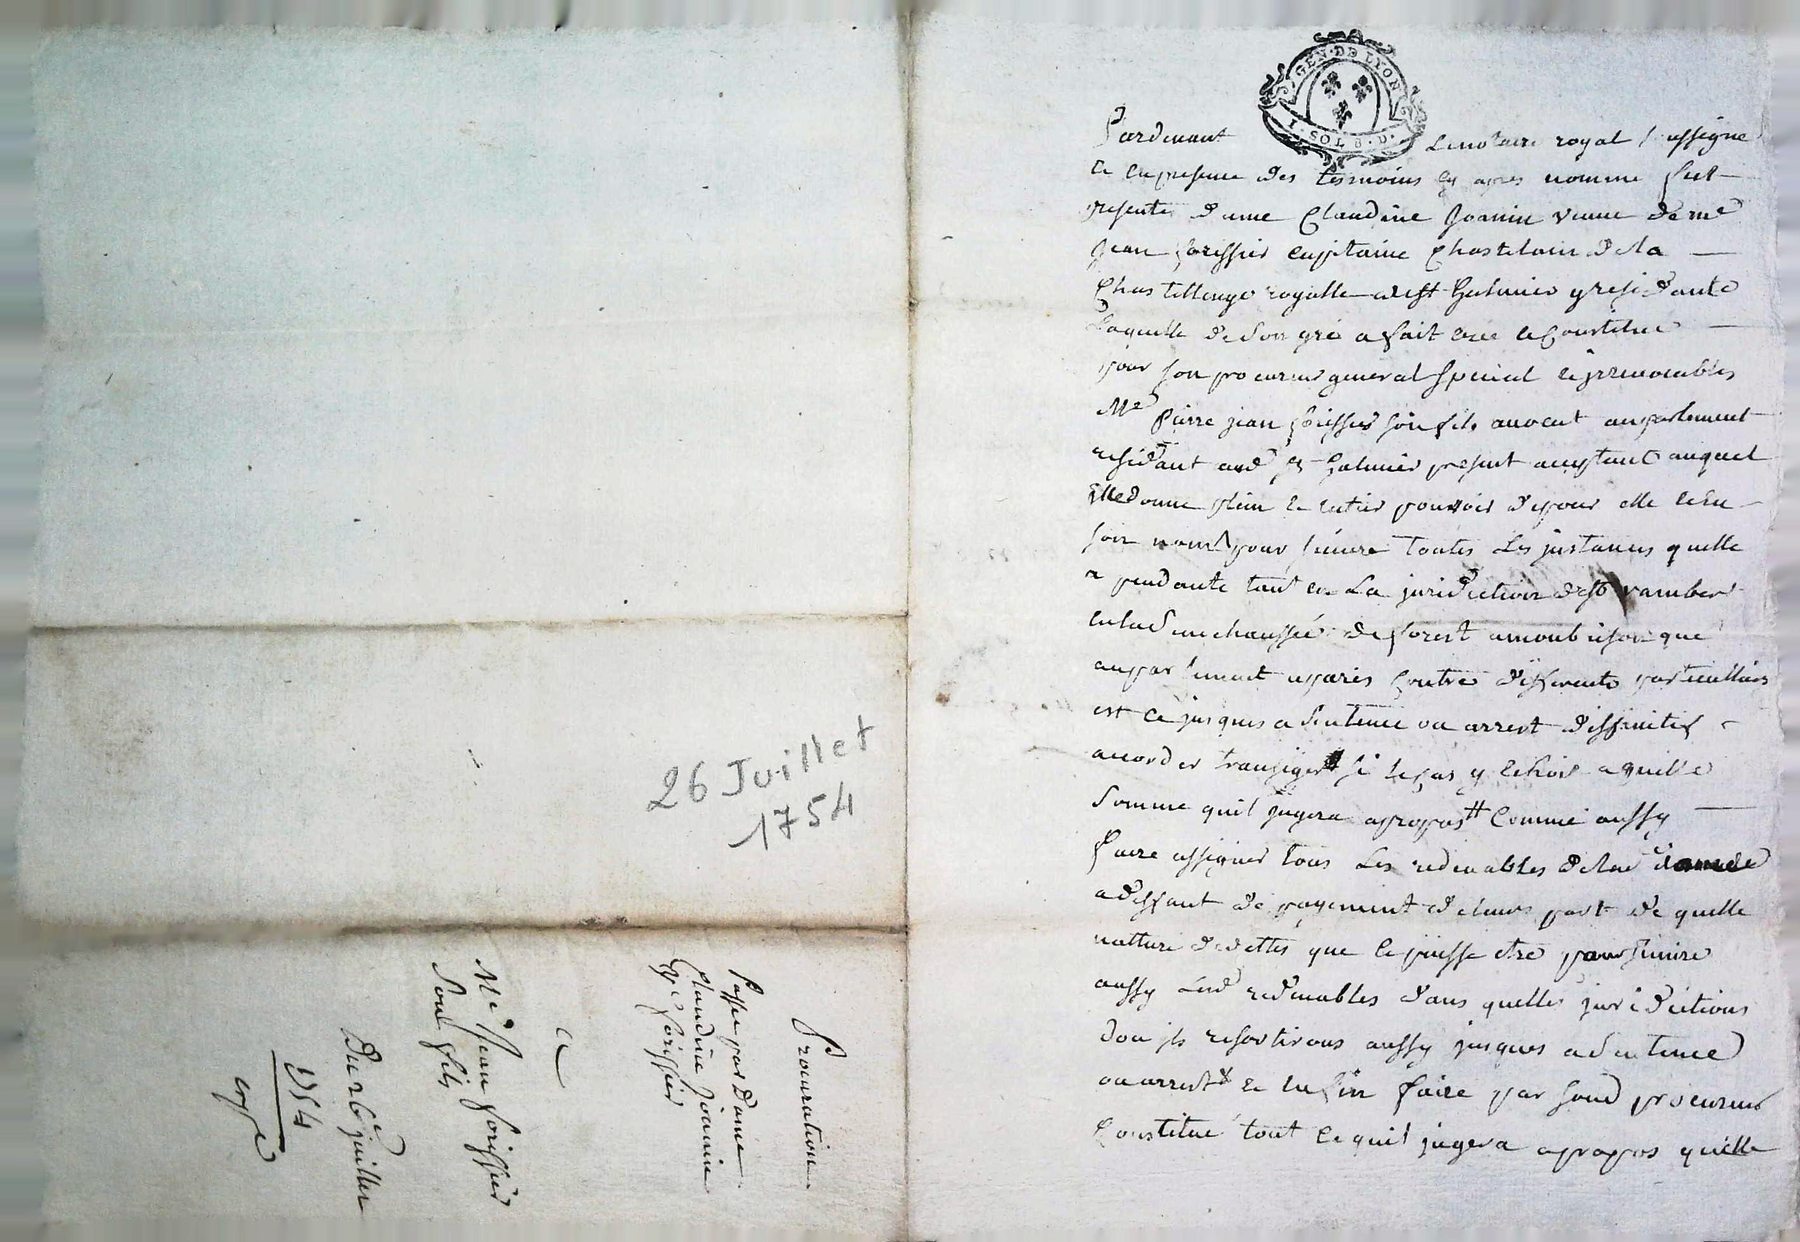 GEN. DE LYON
I. SOL 8. D.
Pardevant Le notaire royal soussigné
et en presence des tesmoins cy apres nommé fut
presente dame Claudine Joanin veuve de me
Jean forissier capitaine Chastelain de la
Chastellenye royalle de st Galmier y residante
Laquelle de son gré a fait créé et Constitué
pour son procureur general special et irrevocables
Me Pierre jean forissier son fils avocat au parlement
residant aud st Galmier present acceptant auquel
Elle donne plein et entier pouvoir de pour elle et en
son nom pour suivre toutes Les instances quelle
a pendante tant en La juridiction de st rambert
en la senechaussée de forest a montbrison que
au parlement a paris Contre differents particulliers
est ce jusques a sentence ou arrest diffinitif
accorder transiger si le cas y echoit a quelle
somme quil jugera a propos Comme aussy
faire assigner tous Les redevables de lad dame
a deffaut de payement de leurs part de quelle
natture de dettes que ce puisse etre poursuivre
aussy Lesd redevables dans quelles juridictions
dou ils resortirons aussy jusques a sentence
ou arrest et enfin faire par sond procureur
Constitué tout ce quil jugera a propos quelle
26 Juillet
1754
Procuration
Passée par Dame
Claudine Joanin
Vve forissier
a
Me Jean forissier
Son fils
Du 26e juillet
1754
copié